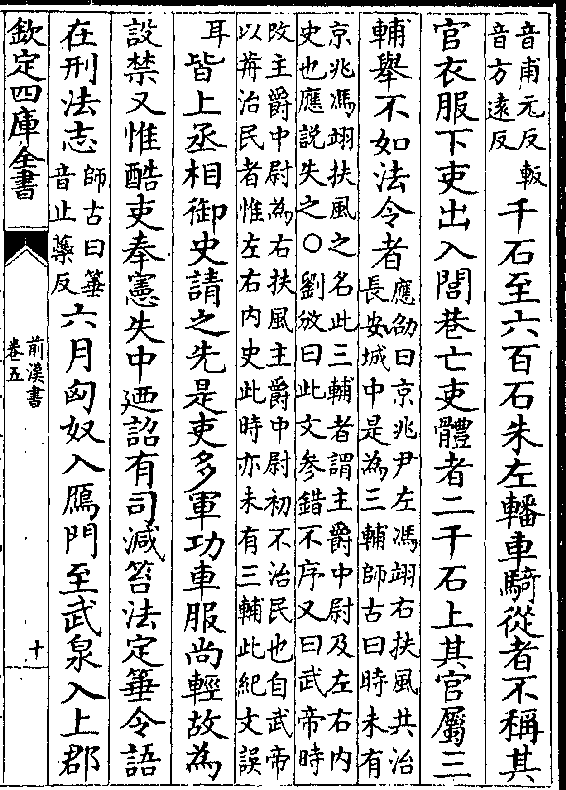 音甫元反
音方遠反
千石至六百石朱左轓車騎從者不稱其
官衣服下吏出入閭巷亡吏體者二千石上其官屬三
輔舉不如法令者
應劭曰京兆尹左馮翊右扶風共治
長安城中是為三輔師古曰時未有
京兆馮翊扶風之名此三輔者謂主爵中尉及左右内
史也應説失之○劉攽曰此文參錯不序又曰武帝時
攺主爵中尉為右扶風主爵中尉初不治民也自武帝
以前治民者惟左右内史此時亦未有三輔此紀文誤
耳
皆上丞相御史請之先是吏多軍功車服尚輕故為
設禁又惟酷吏奉憲失中廼詔有司減笞法定箠令語
在刑法志
師古曰箠
音止蘂反
六月匈奴入鴈門至武泉入上郡
欽定四庫全書
前漢書
卷五
十